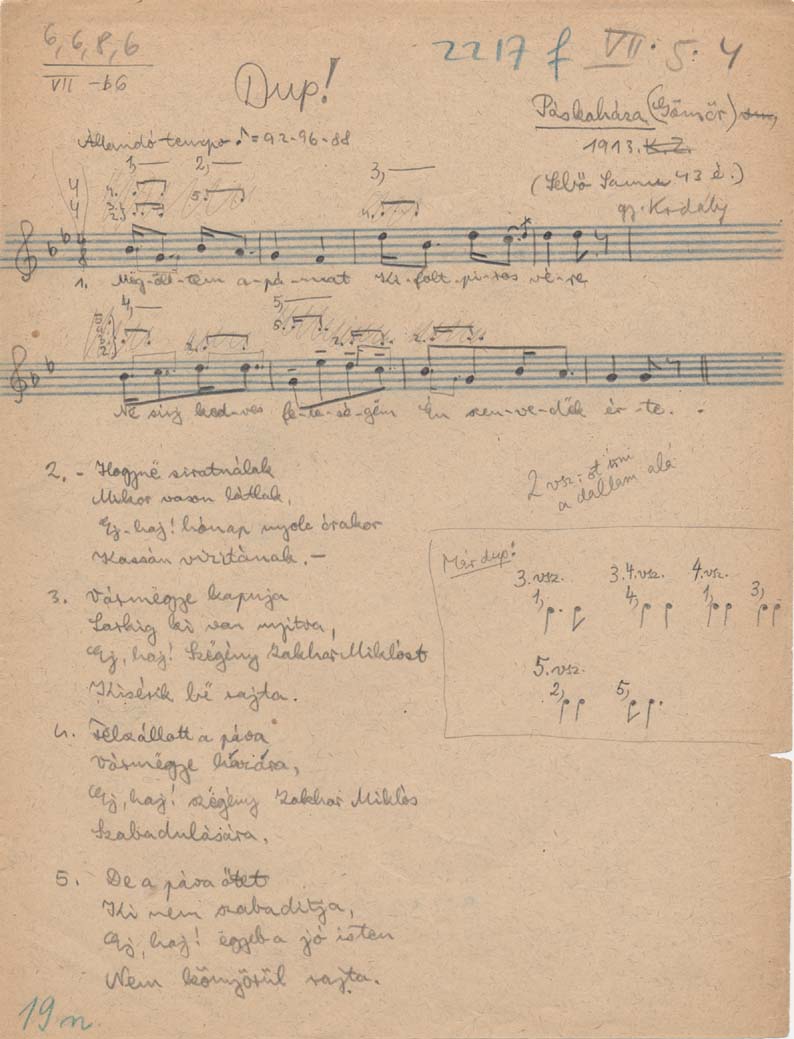 6, 6, 8, 6
VII -b6
2217 f VII. 5. 4
Dup!
Páskaháza (Gömör)
1913. K. Z.
Állandó tempo ♪=92-96-88
43 é.)
gy. Kodály
1, 2,
3,
4. 5.
4.
1. Mëg-öltem a-pá-mat Ki-folt pi-ros vé-re
4, 5,
5.
2. 2. 2. 2.
Në sirj ked-ves fe-le-sé-gëm Én szen-ve-dëk ér-te.
2. - Hogynë siratnálak
Mikor vason látlak,
Ej-haj! hónap nyolc órakor
Kassán vizitának. -
2 vsz.-ot írni
a dallam alá
3. Vármëgye kapuja
Sarkig ki van nyitva,
Ej, haj! Szëgény Zakhar Miklóst
Kisérik bë rajta.
Már dup!
3. vsz. 3.4. vsz. 4. vsz.
1, 4, 1, 3,
5. vsz.
2, 5,
4. Fëlszállott a páva
Vármëgye házára,
Ej, haj! szëgény Zakhar Miklós
Szabadulására.
5. De a páva őtet
Ki nem szabaditja,
Ej, haj! ëgyeb a jó isten
Nem könyörül rajta.
19 n.